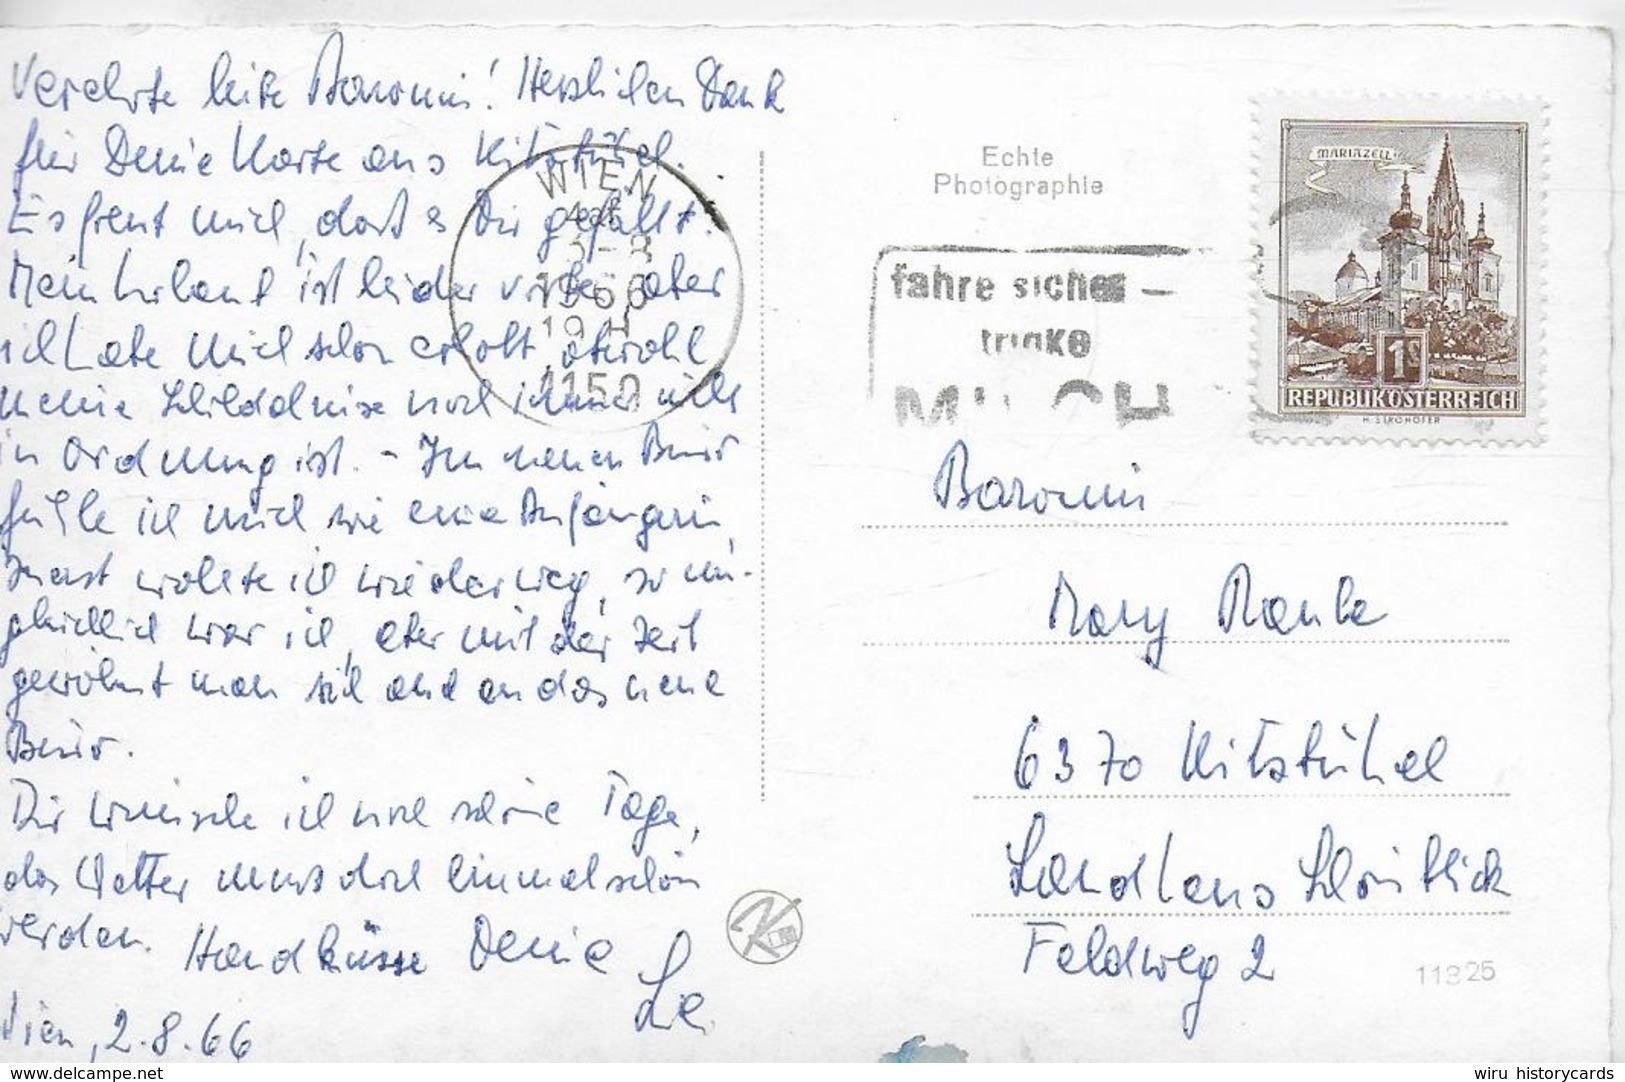 Verehrte liebe Baronin! Herzlichen Dank
für Deine Karte aus Kitzbühel.
Es freut mich, daß es Dir gefällt.
Mein Urlaub ist leider vorbei aber
ich habe mich schon erholt obwohl
meine Schilddrüse noch immer nicht
in Ordnung ist. - Im neuen Büro
fühle ich mich wie eine Anfängerin,
Zuerst wollte ich wieder weg, so un-
glücklich war ich, aber mit der Zeit
gewöhnt man sich auch an das neue
Büro.
Dir wünsche ich noch schöne Tage,
das Wetter muss doch einmal schön
werden. Handküsse Deine
Wien, 2.8.66
WIEN
1150
Echte
Photographie
fahre sicher –
trinke
MILCH
MARIAZELL
1S
REPUBLIK ÖSTERREICH
H. STROHOFER
Baronin
Mary
6370 Kitzbühel
Landhaus Schönblick
Feldweg 2
K
11825
www.delcampe.net
wiru historycards